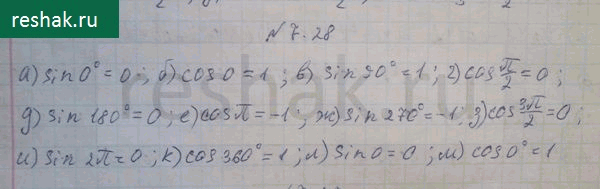 reshak.ru
№ 7.28
а) sin 0° = 0 ; б) cos 0 = 1 ; в) sin 90° = 1 ; г) cos π/2 = 0 ;
д) sin 180° = 0 ; е) cos π = -1 ; ж) sin 270° = -1 ; з) cos 3π/2 = 0 ;
и) sin 2π = 0 ; к) cos 360° = 1 ; л) sin 0 = 0 ; м) cos 0° = 1